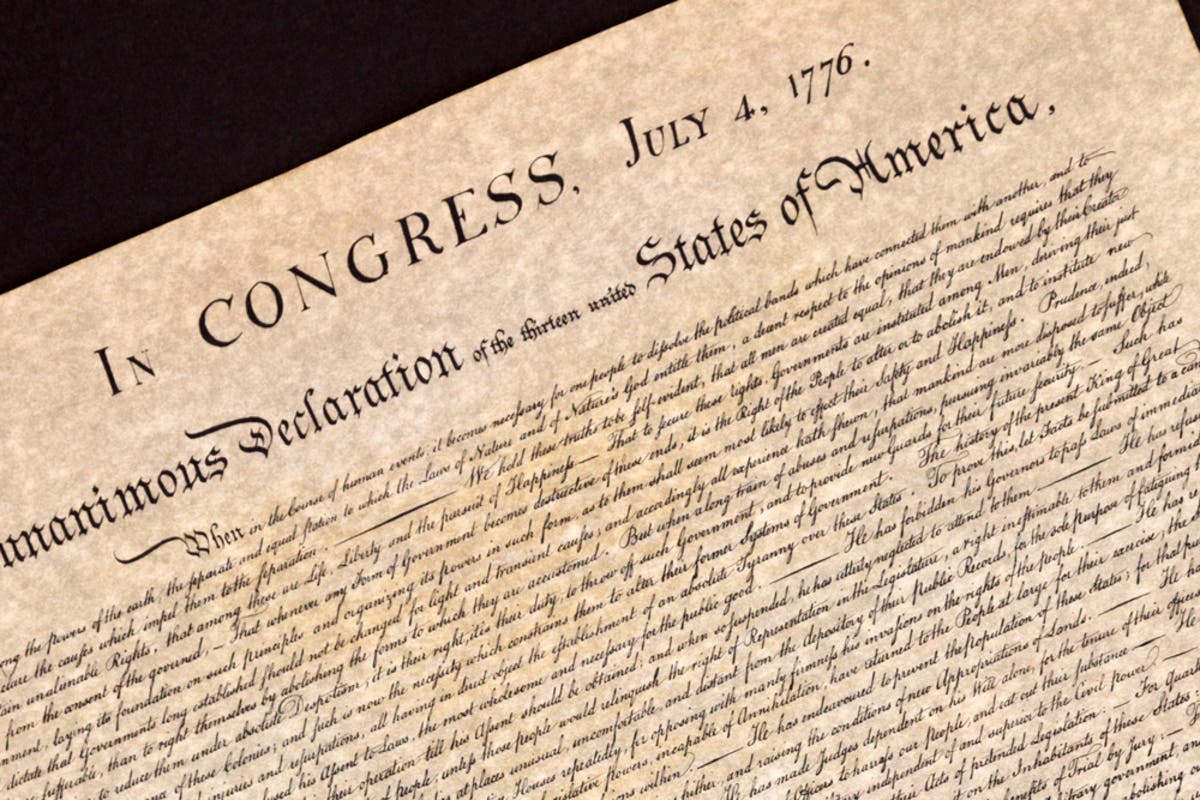 IN CONGRESS, JULY 4, 1776.
unanimous Declaration of the thirteen united States of America,
When in the Course of human events, it becomes necessary for one people to dissolve the political bands which have connected them with another, and to
ong the powers of the earth, the separate and equal station to which the Laws of Nature and of Nature's God entitle them, a decent respect to the opinions of mankind requires that they
clare the causes which impel them to the separation. — We hold these truths to be self-evident, that all men are created equal, that they are endowed by their Creator
tain unalienable Rights, that among these are Life, Liberty and the pursuit of Happiness — That to secure these rights, Governments are instituted among Men, deriving their just
from the consent of the governed, — That whenever any Form of Government becomes destructive of these ends, it is the Right of the People to alter or to abolish it, and to institute new
nment, laying its foundation on such principles and organizing its powers in such form, as to them shall seem most likely to effect their Safety and Happiness. Prudence, indeed,
dictate that Governments long established should not be changed for light and transient causes; and accordingly all experience hath shewn, that mankind are more disposed to suffer, while
sufferable, than to right themselves by abolishing the forms to which they are accustomed. But when a long train of abuses and usurpations, pursuing invariably the same Object
to reduce them under absolute Despotism, it is their right, it is their duty, to throw off such Government, and to provide new Guards for their future security. — Such has
ance of these Colonies; and such is now the necessity which constrains them to alter their former Systems of Government. The history of the present King of Great
injuries and usurpations, all having in direct object the establishment of an absolute Tyranny over these States. To prove this, let Facts be submitted to a can
used his Assent to Laws, the most wholesome and necessary for the public good. — He has forbidden his Governors to pass Laws of immedia
their operation till his Assent should be obtained; and when so suspended, he has utterly neglected to attend to them. — He has refus
of people, unless those people would relinquish the right of Representation in the Legislature, a right inestimable to them and form
at places unusual, uncomfortable, and distant from the depository of their Public Records, for the sole purpose of fatiguing
Houses repeatedly, for opposing with manly firmness his invasions on the rights of the people. — He has
islative powers, incapable of Annihilation, have returned to the People at large for their exercise; the
within. — He has endeavoured to prevent the population of these States; for that
hither, and raising the conditions of new Appropriations of Lands. — He ha
He has made Judges dependent on his Will alone, for the tenure of their offices
Officers to harrass our People, and eat out their substance. — He
independent of and superior to the Civil power. —
their Acts of pretended Legislation: — For Quar
on the Inhabitants of these States
benefits of Trial by Jury:
abolishing